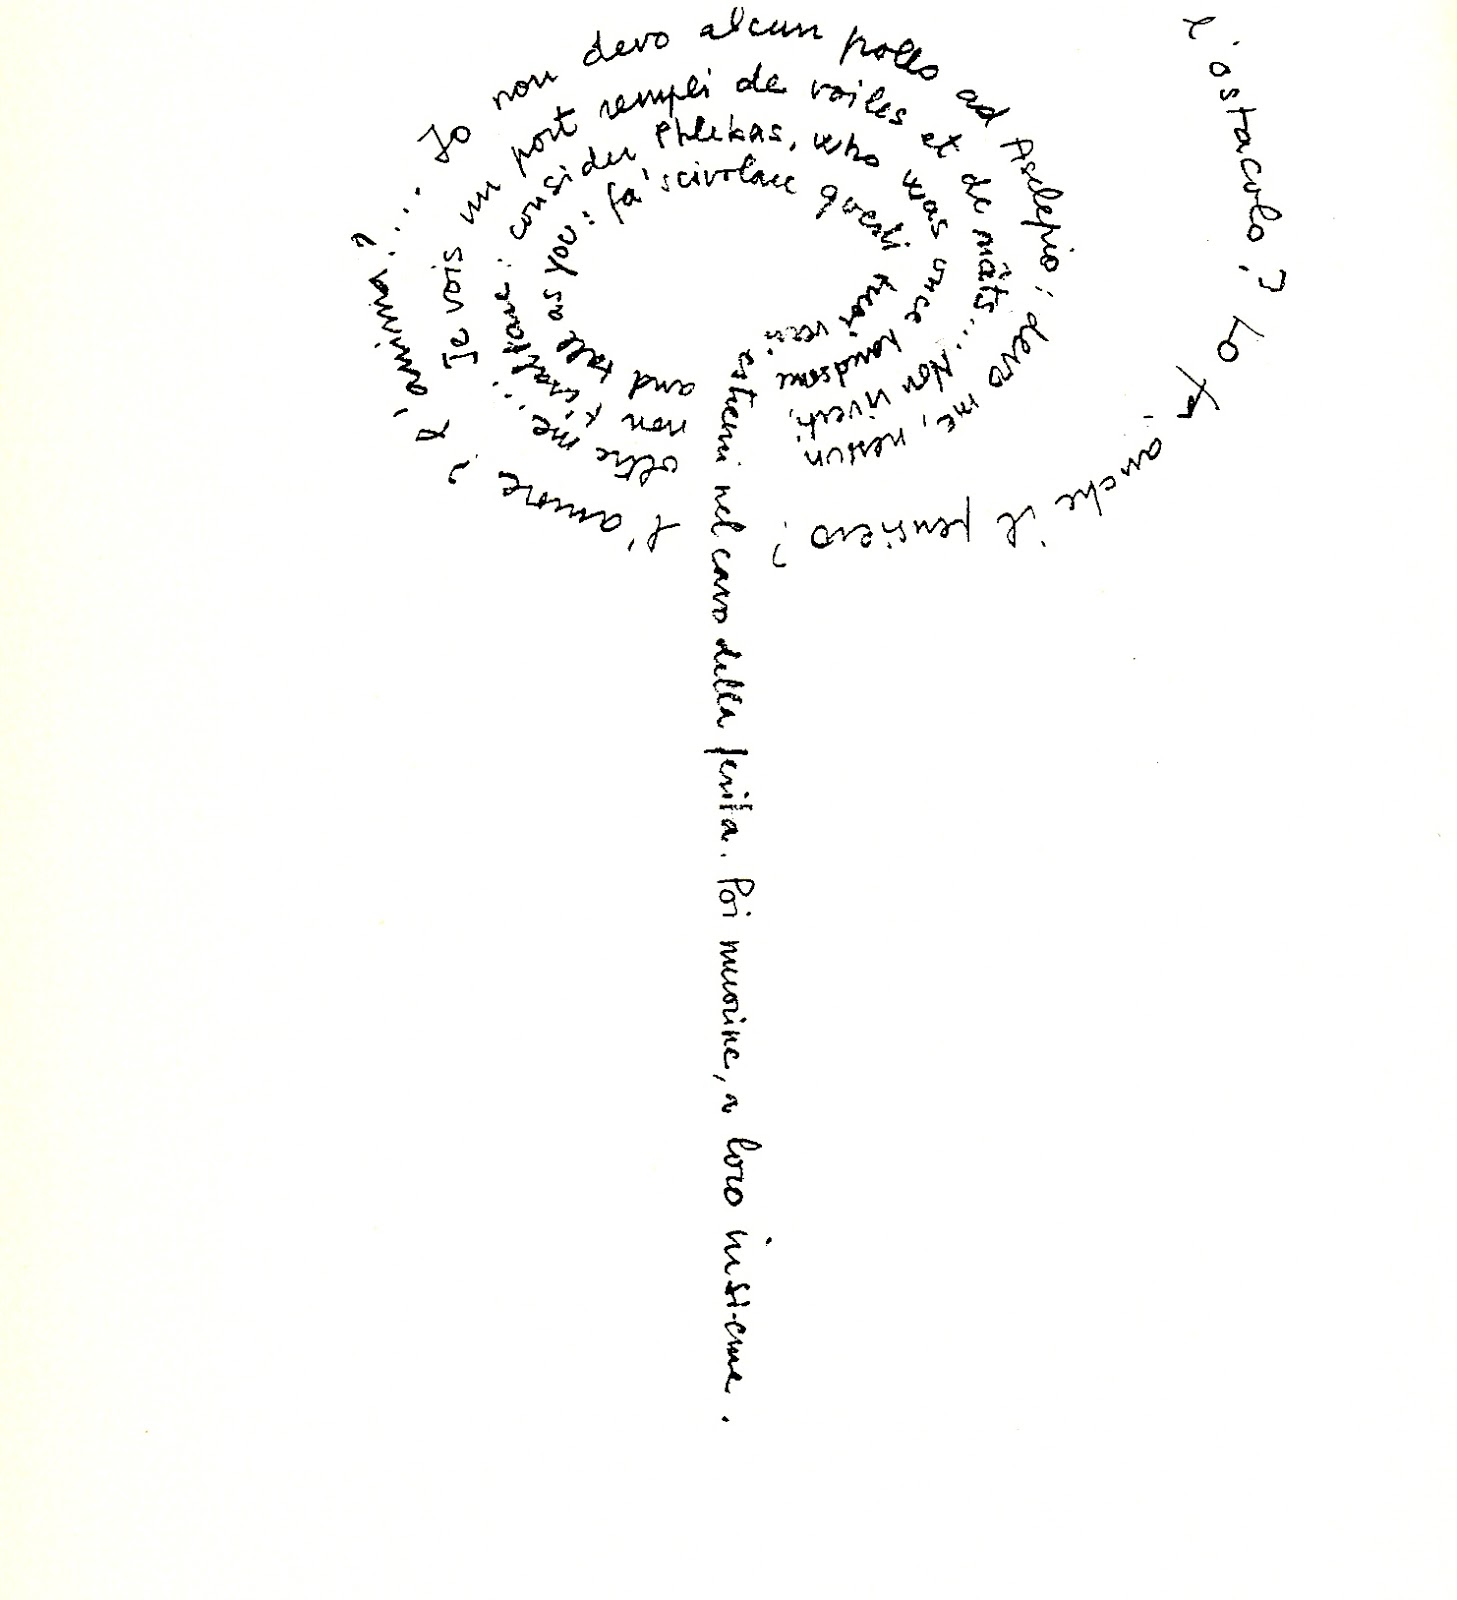 l'ostacolo? Lo fa anche il pensiero?
l'amore? l'anima?... Io non devo alcun pollo ad Asclepio: devo me, nessun
oltre me... Je vois un port rempli de voiles et de mâts... Non
non t'esaltare: consider Phlebas, who was once handsome
and tall as you: fa' scivolare questi
estremi nel cavo della ferita. Poi muorine, a loro insieme.